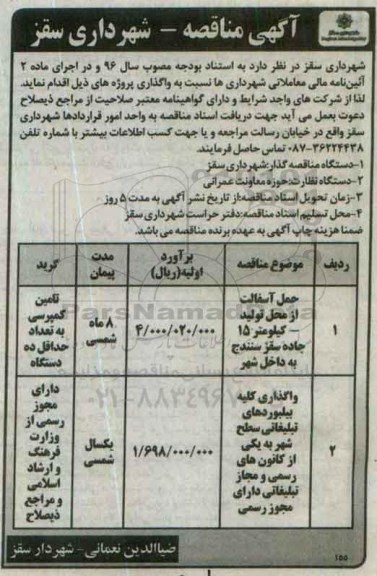 آگهی مناقصه - شهرداری سقز
شهرداری سقز در نظر دارد به استناد بودجه مصوب سال ۹۶ و در اجرای ماده ۲
آئین‌نامه مالی معاملاتی شهرداری ها نسبت به واگذاری پروژه های ذیل اقدام نماید.
لذا از شرکت های واجد شرایط و دارای گواهینامه معتبر صلاحیت از مراجع ذیصلاح
دعوت بعمل می آید جهت دریافت اسناد مناقصه به واحد امور قراردادها شهرداری
سقز واقع در خیابان رسالت مراجعه و یا جهت کسب اطلاعات بیشتر با شماره تلفن
۳۶۲۲۴۴۳۸-۰۸۷ تماس حاصل فرمایند.
۱-دستگاه مناقصه گذار:شهرداری سقز
۲-دستگاه نظارت:حوزه معاونت عمرانی
۳-زمان تحویل اسناد مناقصه:از تاریخ نشر آگهی به مدت ۵ روز
۴-محل تسلیم اسناد مناقصه:دفتر حراست شهرداری سقز
ضمنا هزینه چاپ آگهی به عهده برنده مناقصه می باشد.
ردیف موضوع مناقصه برآورد اولیه(ریال) مدت پیمان گرید
۱ حمل آسفالت از محل تولید – کیلومتر ۱۵ جاده سقز سنندج به داخل شهر ۴/۰۰۰/۰۲۰/۰۰۰ ۸ ماه شمسی تامین کمپرسی به تعداد حداقل ده دستگاه
۲ واگذاری کلیه بیلبوردهای تبلیغاتی سطح شهر به یکی از کانون های رسمی و مجاز تبلیغاتی دارای مجوز رسمی ۱/۶۹۸/۰۰۰/۰۰۰ یکسال شمسی دارای مجوز رسمی از وزارت فرهنگ و ارشاد اسلامی و مراجع ذیصلاح
ضیاالدین نعمانی- شهردار سقز
۱۵۵
ParsNamadData